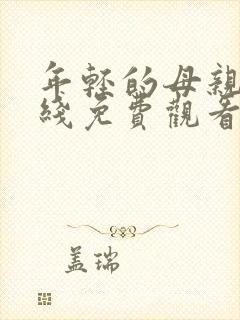 年轻的母親
綫免費觀看
盖瑞